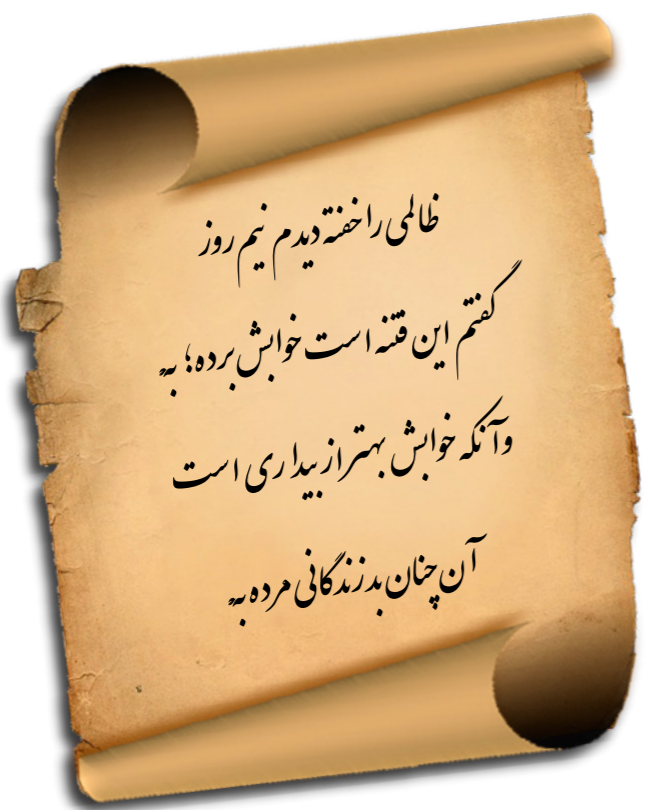 ظالمی را خفته دیدم نیم روز
گفتم این فتنه است خوابش برده؛ به
وآنکه خوابش بهتر از بیداری است
آن چنان بد زندگانی مرده به